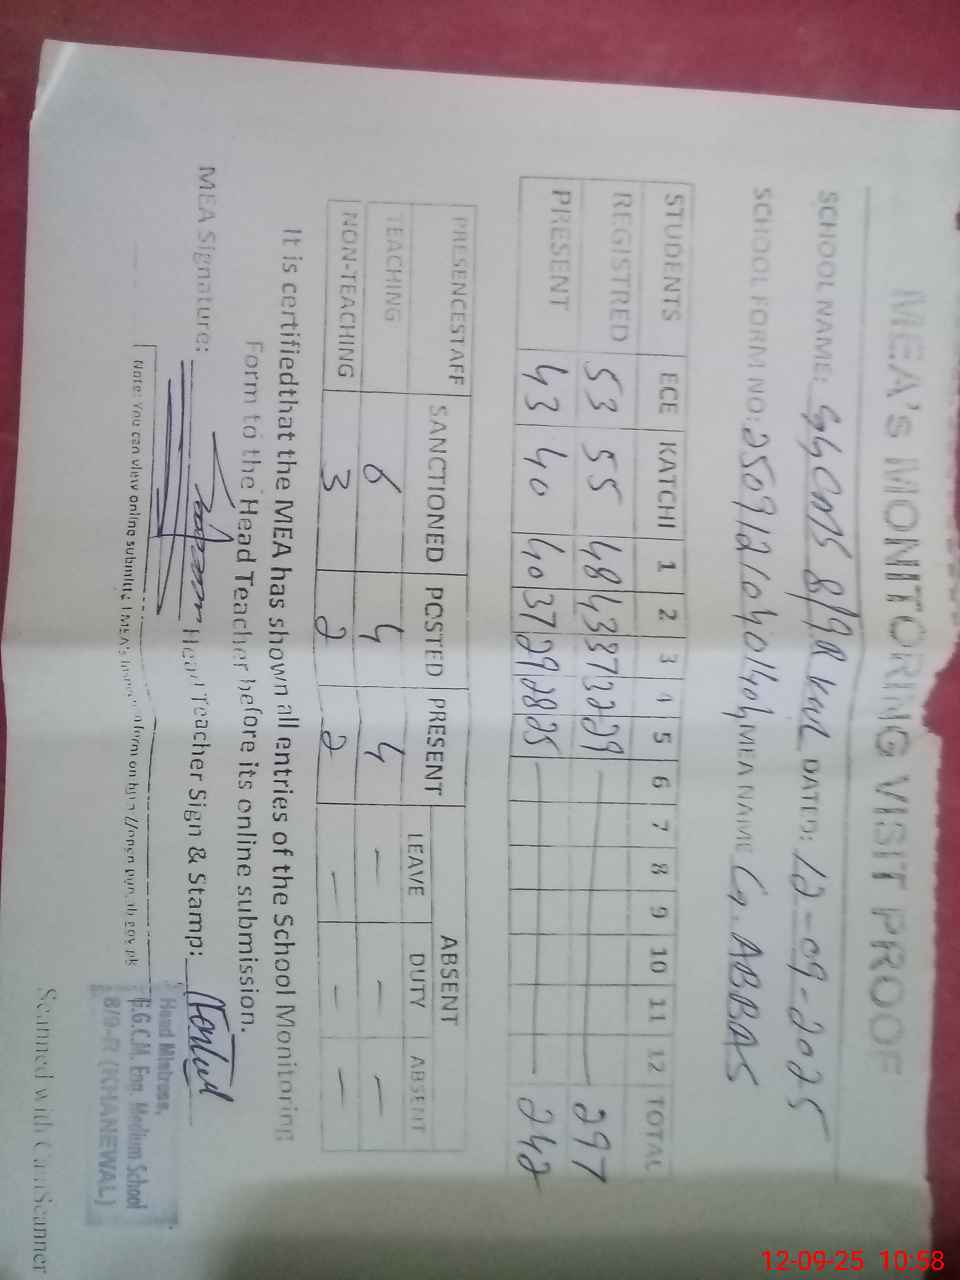 MEA'S MONITORING VISIT PROOF
SCHOOL NAME: GGCMS 8/9R KWL DATED: 12-09-2025
SCHOOL FORM NO: MEA NAME G. ABBAS
STUDENTS ECE KATCHI 1 2 3 4 5 6 7 8 9 10 11 12 TOTAL
REGISTRED 53 55 48 43 37 32 29 — 297
PRESENT 43 40 40 37 29 28 25 — 242
PRESENCESTAFF SANCTIONED POSTED PRESENT ABSENT
LEAVE DUTY ABSENT
TEACHING 6 4 4 — — —
NON-TEACHING 3 2 2 — — —
It is certifiedthat the MEA has shown all entries of the School Monitoring
Form to the Head Teacher before its online submission.
MEA Signature: Head Teacher Sign & Stamp:
Head Mistress,
G.G.C.M. Eng. Medium School
8/9-R (KHANEWAL)
Note: You can view online submitted MEA's
Scanned with CamScanner
12-09-25 10:58